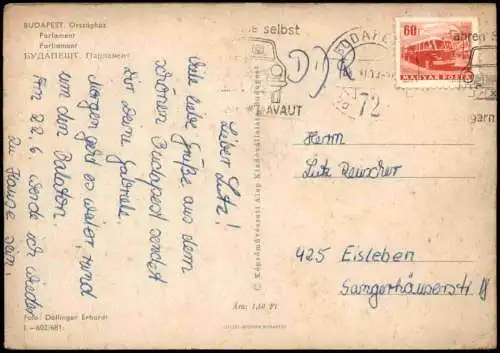 BUDAPEST. Országház
Parlament
Parliament
БУДАПЕШТ. Парламент
Lieber Lutz!
Viele liebe Grüße aus dem
schönen Budapest sendet
Dir Deine Gabriele.
Morgen geht es weiter, rund
um den Balaton.
Am 22.6. werde ich wieder
zu Hause sein.
Foto: Dollinger Erhardt
I.-602/681.
© Képzőművészeti Alap Kiadóvállalata, Budapest
Ára: 1,50 Ft
selbst
AVAUT
BUDAPE
72
60 f
MAGYAR POSTA
ahren S
garn
Herrn
Lutz Rauscher
425 Eisleben
Sangerhäuserstr.